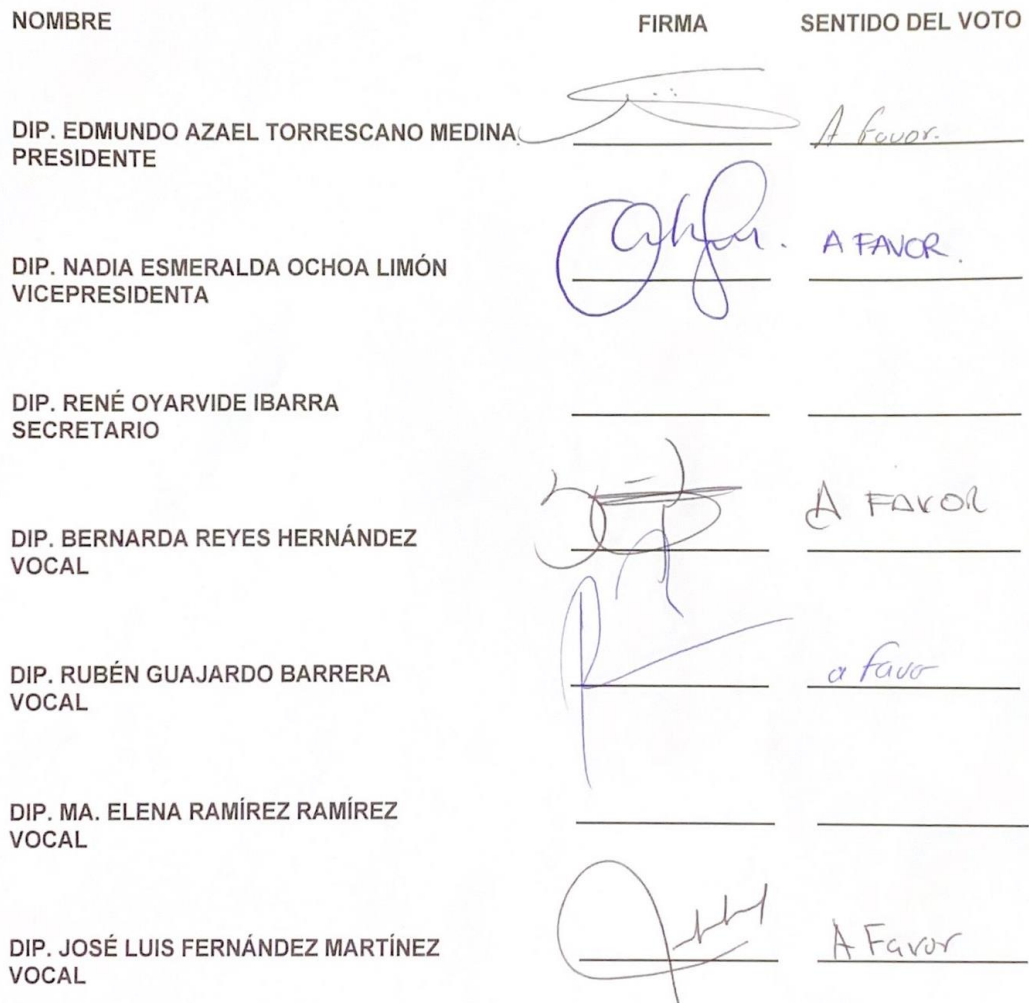 NOMBRE FIRMA SENTIDO DEL VOTO
DIP. EDMUNDO AZAEL TORRESCANO MEDINA A favor.
PRESIDENTE
DIP. NADIA ESMERALDA OCHOA LIMÓN A FAVOR.
VICEPRESIDENTA
DIP. RENÉ OYARVIDE IBARRA
SECRETARIO
DIP. BERNARDA REYES HERNÁNDEZ A FAVOR
VOCAL
DIP. RUBÉN GUAJARDO BARRERA a favo
VOCAL
DIP. MA. ELENA RAMÍREZ RAMÍREZ
VOCAL
DIP. JOSÉ LUIS FERNÁNDEZ MARTÍNEZ A Favor
VOCAL